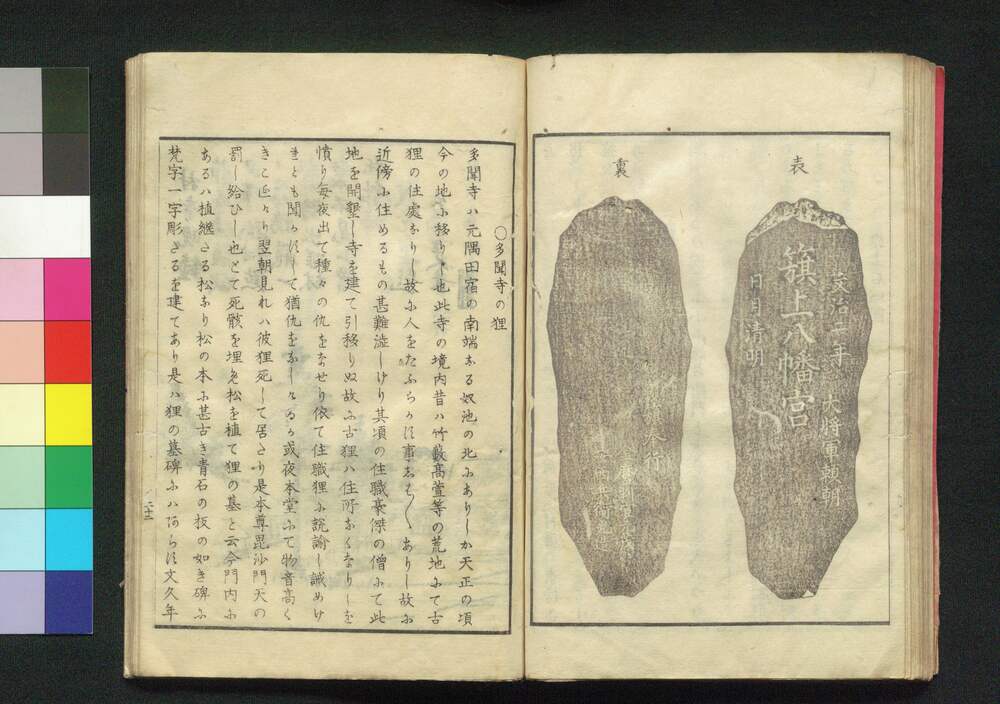 表
文治二年 大将軍頼朝
籏上八幡宮
日月清明
裏
〇多聞寺の狸
多聞寺ハ元隅田宿の南端なる奴池の北にありしか天正の頃
今の地に移りし也此寺の境内昔ハ竹藪髙萱等の荒地にて古
狸の住處なりし故に人をたふらかす事しはしはありし故に
近傍に住めるもの甚難渋しけり其頃の住職豪傑の僧にて此
地を開墾し寺を建て引移りぬ故に古狸ハ住所なくなりしを
憤り毎夜出て種々の仇をなせり依て住職狸に説諭し誡めけ
れとも聞かすして猶仇をなしゝゐるか或夜本堂にて物音高く
きこ〳〵翌朝見れハ彼狸死して居たり是本尊毘沙門天の
罰し給ひし也とて死骸を埋め松を植て狸の墓と云今門内に
あるハ植継たる松なり松の本に甚古き青石の板の如き碑に
梵字一字彫たるを建てあり是ハ狸の墓碑にハあらす文久年